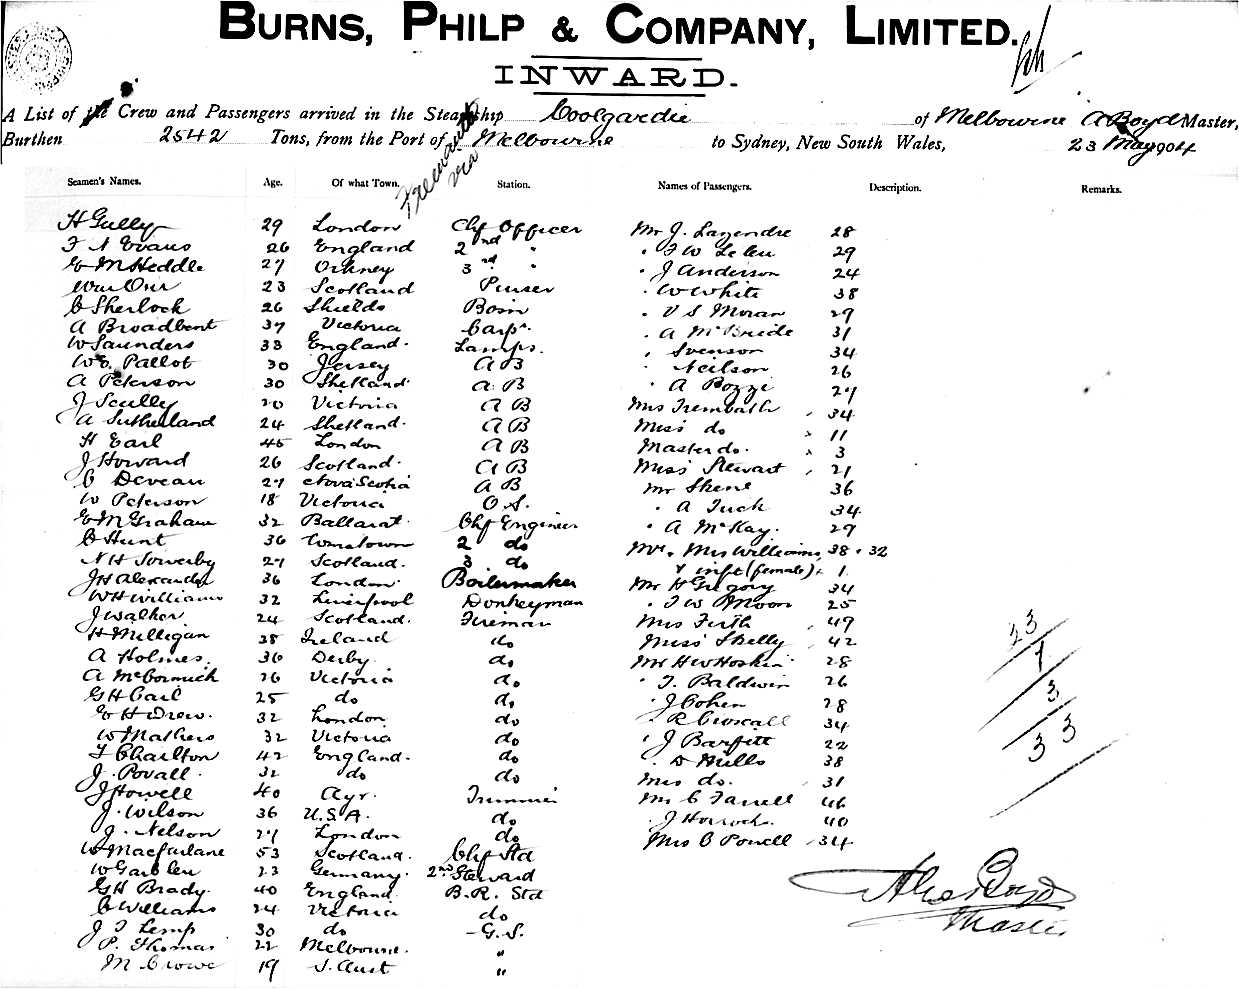 BURNS, PHILP & COMPANY, LIMITED.
INWARD.
A List of the Crew and Passengers arrived in the Steamship Coolgardie of Melbourne A Boyd Master,
Burthen 2542 Tons, from the Port of Fremantle via Melbourne to Sydney, New South Wales, 23 May 1904
Seamen's Names. Age. Of what Town. Station. Names of Passengers. Description. Remarks.
H Gully 29 London Chf Officer Mr J. 28
F A Evans 26 England 2nd " " F W 29
G M Heddle 27 Orkney 3rd " " J Anderson 24
Wm Orr 23 Scotland Purser " W White 38
C Sherlock 26 Shields Bosn " V S Moran 29
A Broadbent 37 Victoria Carpr. " A McBride 31
W Saunders 33 England. Lamps. " Svenson 34
W G. Pallot 30 Jersey A B " Neilson 26
A Peterson 30 Shetland A B " A Bozzi 27
J Scully 20 Victoria A B Mrs Trembath 34
A Sutherland 24 Shetland. A B Miss do 11
H Earl 45 London A B Master do. 3
J Howard 26 Scotland. A B Miss Stewart 21
C Deveau 27 Nova Scotia A B Mr Skene 36
W Peterson 18 Victoria O.S. " A Tuck 34
G M Graham 32 Ballarat. Chf Engineer " A McKay. 29
C Hunt 36 2 do Mr & Mrs Williams 38 & 32
N H Sowerby 27 Scotland. 3 do & inft (female) 1
J H Alexander 36 London. Boilermaker Mr H Gregory 34
W H Williams 32 Liverpool Donkeyman " F W Moon 25
J Walker 24 Scotland. Fireman Mrs Firth 49
H Milligan 38 Ireland do Miss Skelly 42
A Holmes. 36 Derby. do Mr H W Hoskin 28
A McCormick 26 Victoria do " T. Baldwin 26
G H Carl 25 do do " J Cohen 28
G H Drew. 32 London do " R Croscall 34
W Mathers 32 Victoria do " J Barfitt 22
T Charlton 42 England. do " D Mills 38
J. Povall. 32 do do Mrs do. 31
J Howell 40 Ayr. Trimmer Mr C Farrell 46
J. Wilson 36 U.S.A. do " J 40
J. Nelson 27 London do Mrs C Powell 34
W Macfarlane 53 Scotland. Chf Std
W 23 Germany. 2nd Steward
G H Brady. 40 England. B.R. Std
C Williams 24 Victoria do
J T Kemp 30 do G.S.
P. Thomas 22 Melbourne. "
M Crowe 19 S. Aust "
23
7
3
33
Alex Boyd
Master